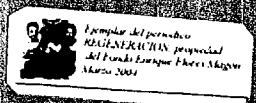 Ejemplar del periodico
REGENERACION, propiedad
del Fondo Enrique Flores Magón
Marzo 2004